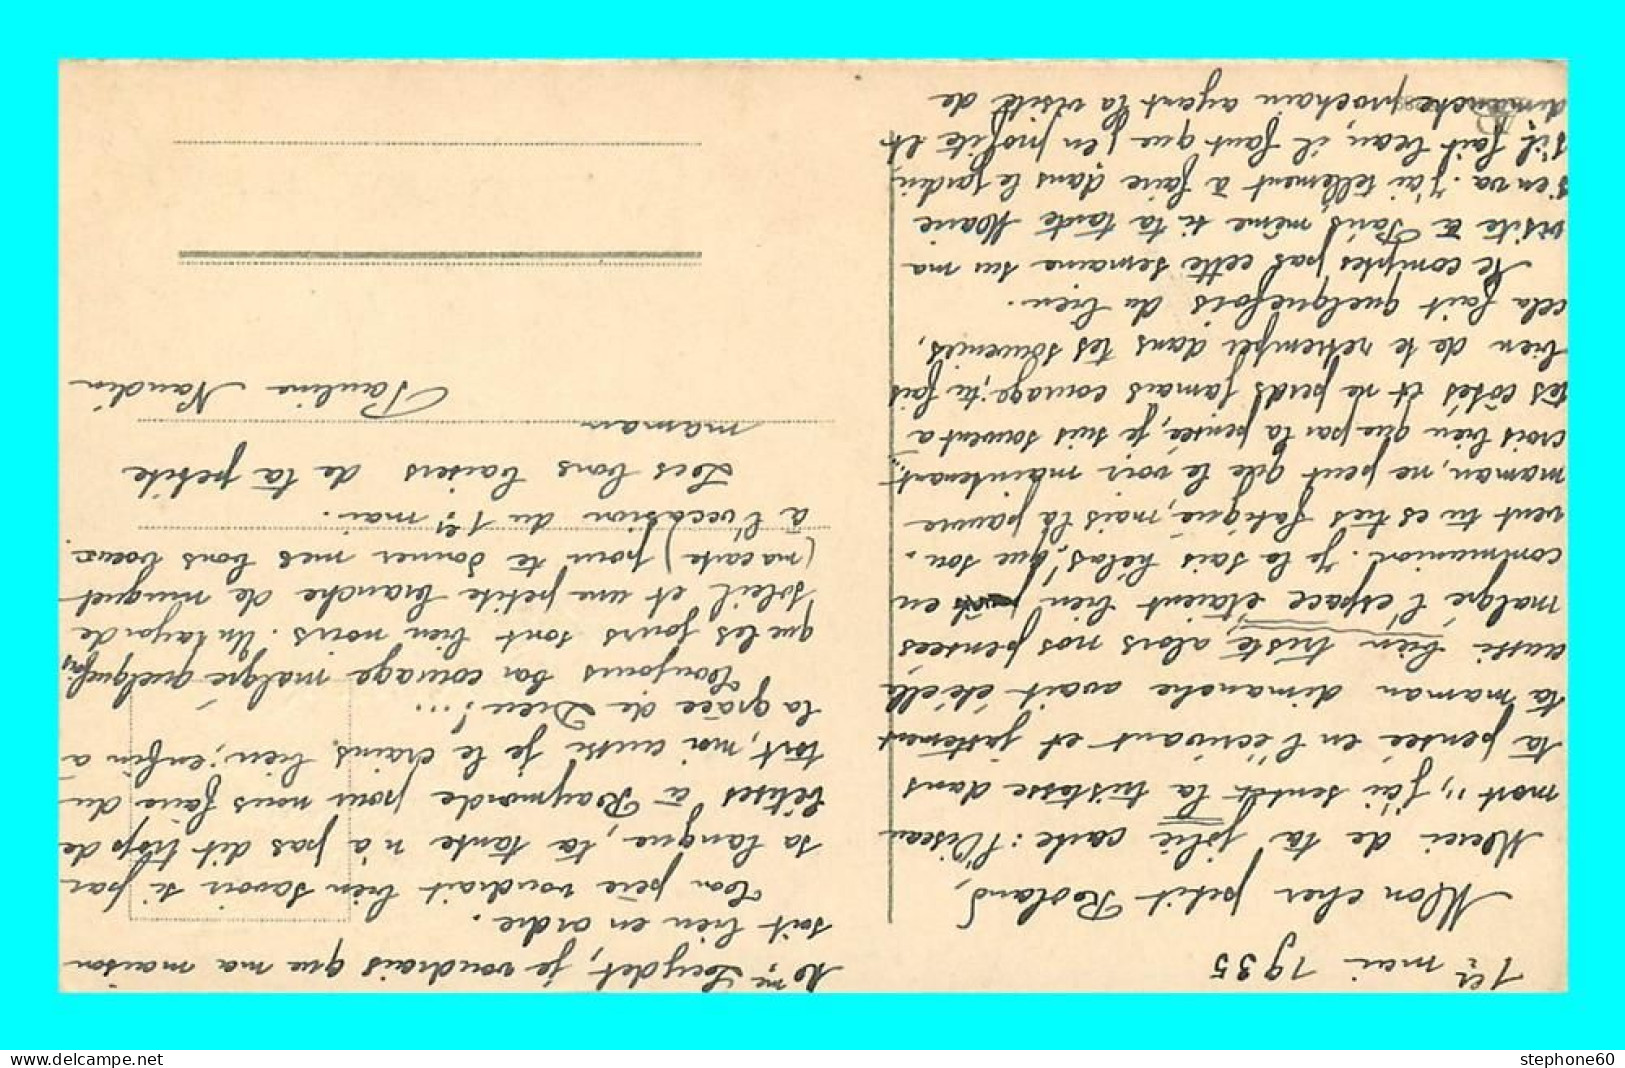 1er mai 1935
Mon cher petit Rosland,
Merci de ta jolie carte : l'Oiseau
mort", j'ai senti la tristesse dans
ta pensée en l'écrivant et justement
ta maman dimanche avait été elle
aussi bien triste, alors nos pensées
malgré l'espace étaient bien en
communion. Je la sais hélas ! que sou-
vent tu es très fatigué, mais la pauvre
maman, ne peut que te voir maintenant...
crois bien que par la pensée, je suis souvent à
tes côtés et ne perds jamais courage, tu fais
bien de te retremper dans tes souvenirs,
cela fait quelquefois du bien.
Ne comptes pas cette semaine sur ma
visite à Paris même si ta tante Marie
s'en va. J'ai tellement à faire dans le jardin,
s'il fait beau, il faut que j'en profite et
dimanche prochain ayant la visite de
Mme Leydet, je voudrais que ma maison
soit bien en ordre.
Ton père voudrait bien savoir si par
sa langue, ta tante n'a pas dit trop de
bêtises à Raymonde pour nous faire du
tort, moi aussi je le crains bien, enfin à
la grâce de Dieu !...
Toujours bon courage malgré quelquefois
que les jours sont bien noirs. Un rayon de
soleil et une petite branche de muguet
(ma carte) pour te donner mes bons voeux
à l'occasion du 1er mai.
Les bons baisers de ta petite
maman
Pauline Naudin
www.delcampe.net
stephone60